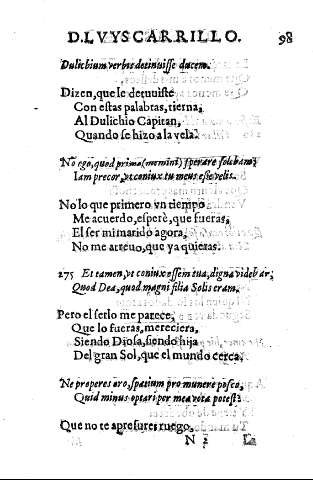 D. LVYS CARRILLO. 98
Dulichium verbis detinuisse ducem.
Dizen, que le detuuiste
Con estas palabras, tierna,
Al Dulichio Capitan,
Quando se hizo a la vela.
No ego, quod primo (memini) sperare solebam;
Iam precor, vt coniux tu meus esse velis.
No lo que primero vn tiempo
Me acuerdo, esperè, que fueras,
El ser mi marido agora,
No me atreuo, que ya quieras.
275 Et tamen, vt coniux essem tua, digna videbar;
Quod Dea, quod magni filia Solis eram.
Pero el serlo me parece,
Que lo fueras, mereciera,
Siendo Diosa, siendo hija
Del gran Sol, que el mundo cerca.
Ne properes oro, spatium pro munere posco,
Quid minus optari per mea vota potest?
Que no te apresures ruego,
N 2 La